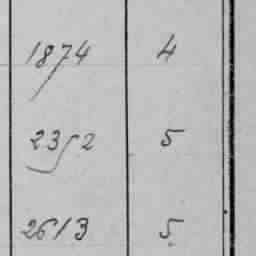 1874 4
2352 5
2613 5